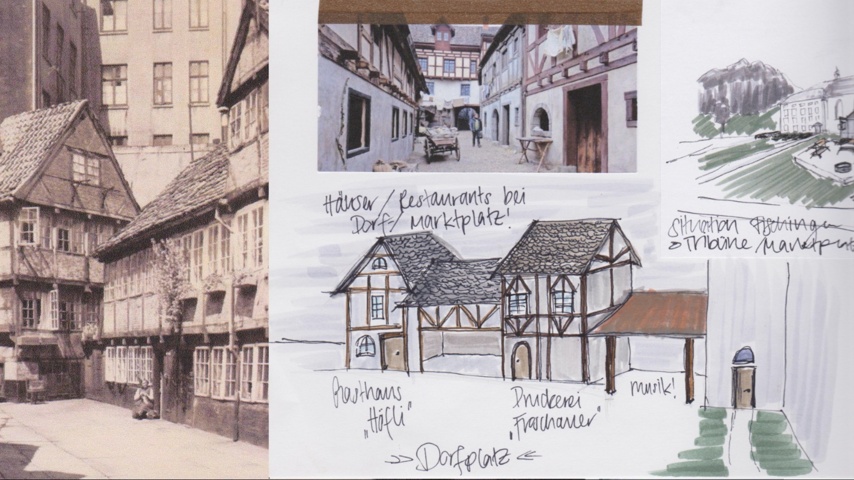 Häuser/Restaurants bei
Dorf/Marktplatz!
Situation Fischingen
Tribüne/Marktplatz
Gasthaus
„Höfli"
Druckerei
„Froschauer"
musik!
>> Dorfplatz <<